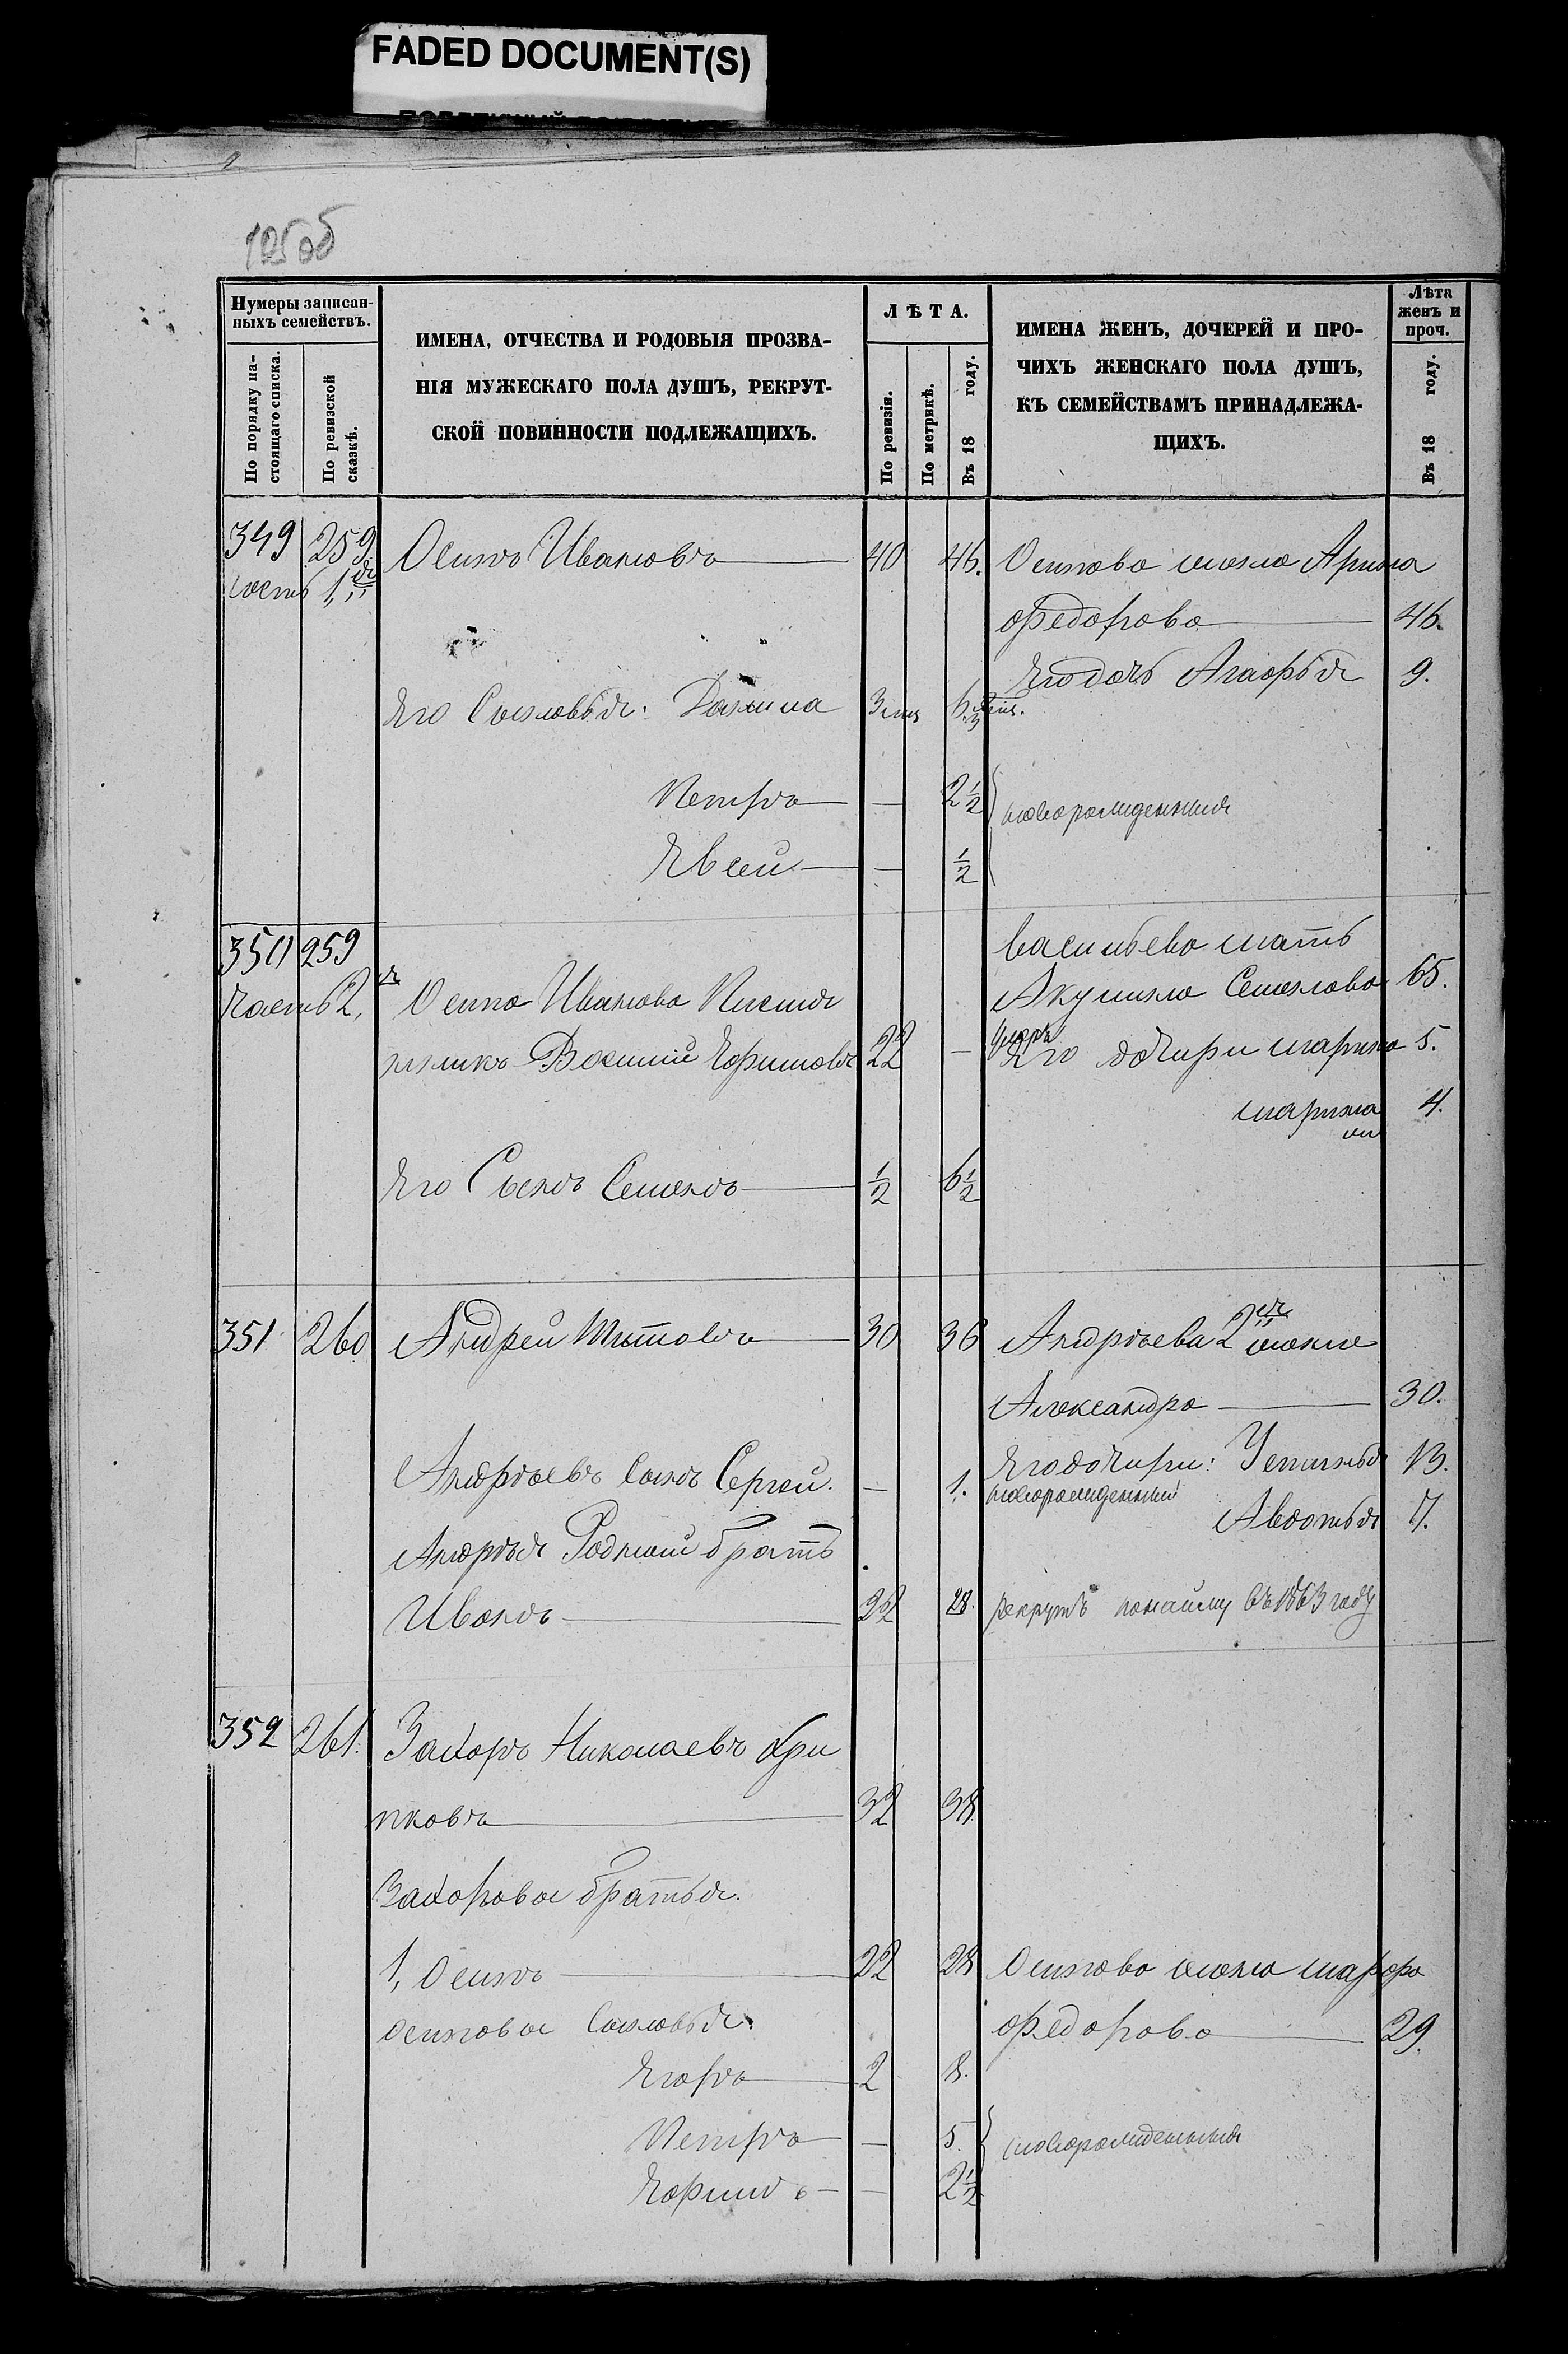 FADED DOCUMENT(S)
125об
Нумеры записан-
ныхъ семействъ.
По порядку на-
стоящаго списка.
По ревизской
сказкѣ.
ИМЕНА, ОТЧЕСТВА И РОДОВЫЯ ПРОЗВА-
НІЯ МУЖЕСКАГО ПОЛА ДУШЪ, РЕКРУТ-
СКОЙ ПОВИННОСТИ ПОДЛЕЖАЩИХЪ.
ЛѢТА.
По ревизіи.
По метрикѣ.
Въ 18 году.
ИМЕНА ЖЕНЪ, ДОЧЕРЕЙ И ПРО-
ЧИХЪ ЖЕНСКАГО ПОЛА ДУШЪ,
КЪ СЕМЕЙСТВАМЪ ПРИНАДЛЕЖА-
ЩИХЪ.
Лѣта
женъ и
проч.
Въ 18 году.
349 259 Осипъ Ивановъ 40 46. Осипова жена Арина
часть 1,я
Федорова 46.
Его дочь Агафья 9.
Его Сыновья: Данила
Петръ — 2½ новорожденныя
Евсей — ½
350 259 Васильева мать
Часть 2,я Осипа Иванова
Акулина Семенова 65.
Василий Ефимовъ 22 — умеръ Его дочери марина 5.
марина 4.
Его Сынъ Семенъ ½ 6½
351 260 Андрей Титовъ 30 36 Андрѣева 2я жена
Александра 30.
Андрѣевъ Сынъ Сергей. — 1. новорожденный
Его дочери: Устинья 13.
Авдотья 7.
Андрѣя Родной братъ
Иванъ 22 28. рекрутъ понайму въ 1863 году
352 261. Захаръ Николаевъ Хри
пковъ 32 38
Захаровы братья.
1, Осипъ 22 28 Осипова жена марфа
Федорова 29.
Осиповы Сыновья.
Егоръ 2 8.
Петръ — 5. новорожденныя
Ефимъ — 2½